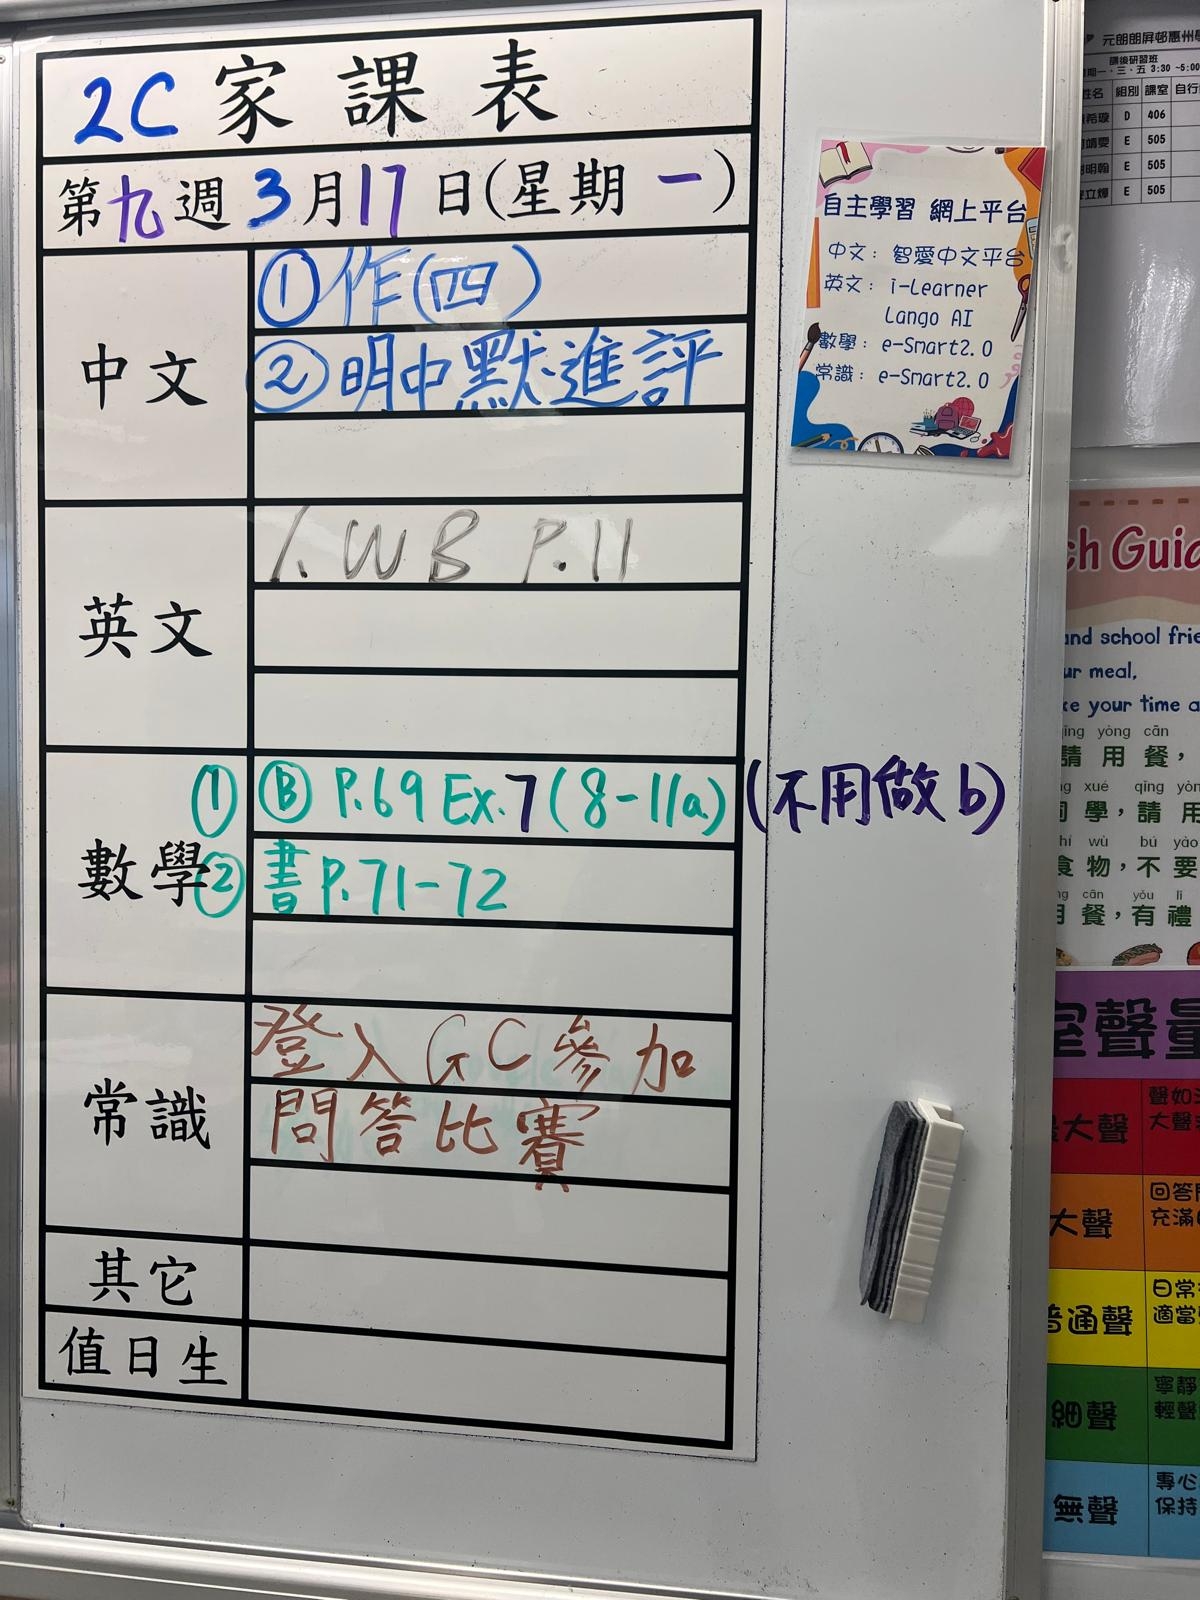 2C 家課表
第九週 3月17日(星期一)
中文
①作(四)
②明中默進評
英文
1. WB P.11
數學
① Ⓑ P.69 Ex.7(8-11a) (不用做b)
② 書 P.71-72
常識
登入GC參加
問答比賽
其它
值日生
自主學習 網上平台
中文：智愛中文平台
英文：i-Learner
Lango AI
數學：e-Smart2.0
常識：e-Smart2.0
元朗朗屏邨惠州學
課後研習班
期一、三、五 3:30 ~5:00
姓名 組別 課室 自行
希璇 D 406
靖雯 E 505
明翰 E 505
立煇 E 505
ch Guid
and school frie
ur meal,
ke your time a
qǐng yòng cān
請用餐，
xué qǐng yòn
同學，請用
shí wù bú yào
食物，不要
cān yǒu lǐ
用餐，有禮
室聲量
最大聲
聲如
大聲
大聲
回答
充滿
普通聲
日常
適當
細聲
寧靜
輕聲
無聲
專心
保持